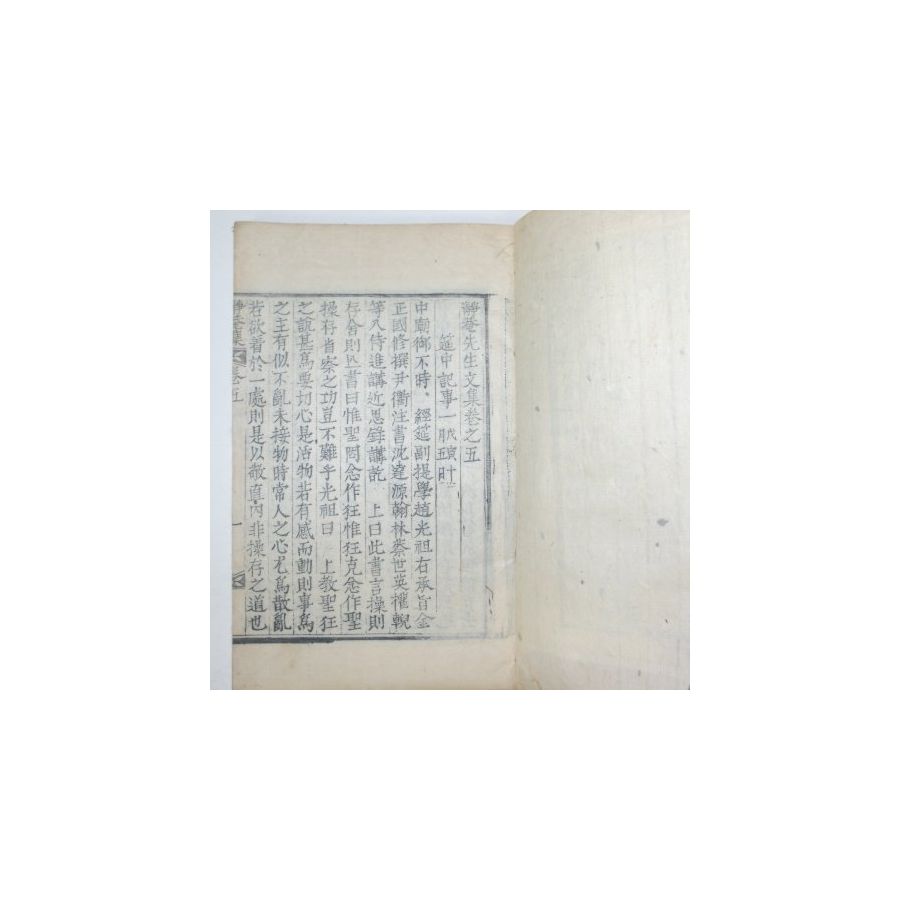 靜菴先生文集卷之五
筵中記事一
中廟御不時 經筵副提學趙光祖右承旨金
正國修撰尹衢注書沈達源翰林蔡世英權輗
等入侍進講近思錄講訖 上曰此書言操則
存舍則亡書曰惟聖罔念作狂惟狂克念作聖
操存省察之功豈不難乎光祖曰 上教聖狂
之說甚爲要切心是活物若有感而動則事爲
之主有似不亂未接物時常人之心尤爲散亂
若欲着於一處則是以敬直內非操存之道也
靜菴集 卷五 一